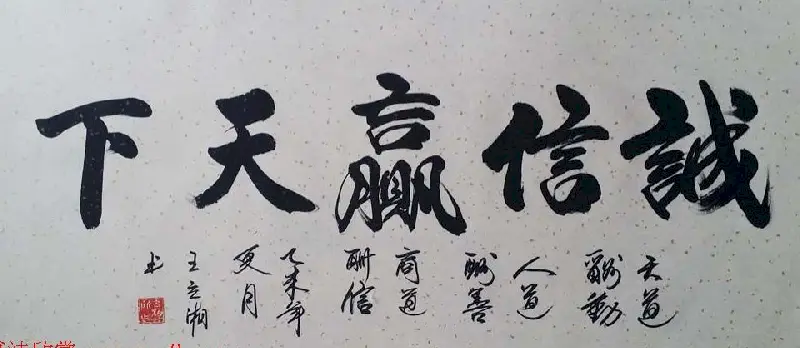 誠信贏天下
天道
酬勤
人道
酬善
商道
酬信
乙未年
夏月
王立湘
书